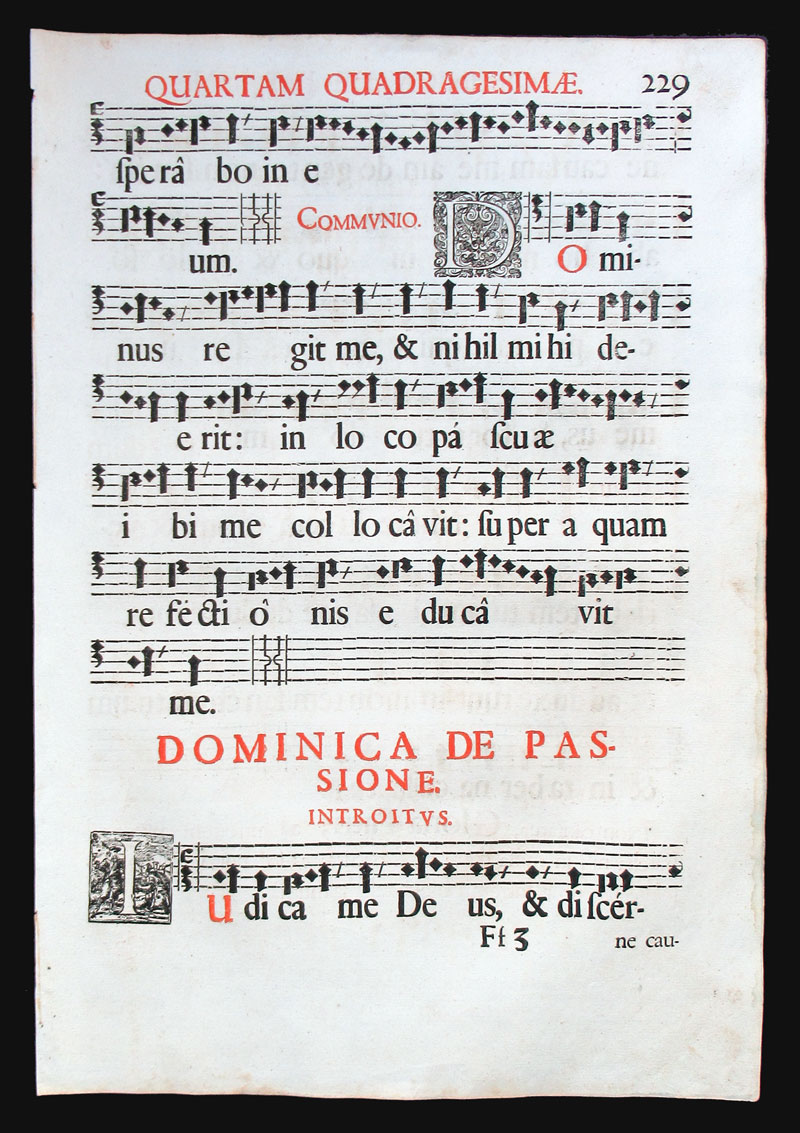 QUARTAM QUADRAGESIMÆ. 229
ſpe râ bo in e
um. COMMVNIO. D O mi-
nus re git me, & ni hil mi hi de-
e rit: in lo co pá ſcu æ
i bi me col lo câ vit: ſu per a quam
re fe cti ô nis e du câ vit
me.
DOMINICA DE PAS-
SIONE.
INTROITVS.
I U di ca me De us, & di ſcér-
Ff 3 ne cau-